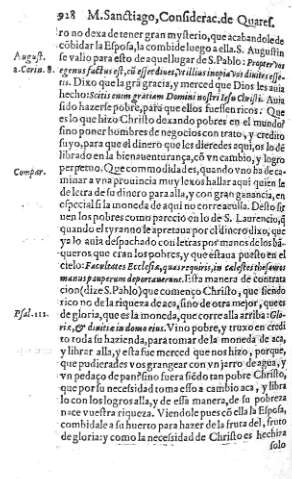 928 M. Sanctiago, Considerac. de Quares.
ro no dexa de tener gran mysterio, que acabandole de
cõbidar la Esposa, la combide luego a ella. S. Augustin
August. se valio para esto de aquel lugar de S. Pablo: Propter vos
2. Corin. 8. egenus factus est, cũ esset diues, vt illius inopia vos diuites esse-
tis. Dixo que la grã gracia, y merced que Dios les auia
hecho: Scitis enim gratiam Domini nostri Iesu Christi. Auia
sido hazerse pobre, para que ellos fuessen ricos: Que
es lo que hizo Christo dexando pobres en el mundo?
sino poner hombres de negocios con trato, y credito
suyo, para que al dinero que les dieredes aqui, os lo dẽ
librado en la bienauenturança, cõ vn cambio, y logro
perpetuo. Que commodidades, quando vno ha de ca-
Compar. minar a vna prouincia muy lexos hallar aqui quien le
de letra de su dinero para alla, y con gran ganancia, en
especial si la moneda de aqui no corre aculla. Desto sir
uen los pobres como pareció en lo de S. Laurencio, q̃
quando el tyranno le apretaua por el dinero dixo, que
ya lo auia despachado con letras por manos de los bã-
queros que eran los pobres, y que estaua puesto en el
cielo: Facultates Ecclesiæ, quas requiris, in cælestes thesauros
manus pauperum deportauerunt. Esta manera de contrata
cion (dize S. Pablo) que començo Christo, que siendo
rico no de la riqueza de aca, sino de otra mejor, que es
Psal. 111. de gloria, que es la moneda, que corre alla arriba: Glo-
riæ, & diuitiæ in domo eius. Vino pobre, y truxo en credi
to toda su hazienda, para tomar de la moneda de aca,
y librar alla, y esta fue merced que nos hizo, porque,
que pudierades vos grangear con vn jarro de agua, y
vn pedaço de pan? sino fuera siẽdo tan pobre Christo,
que por su necessidad toma esso a cambio aca, y libra
lo con los logros alla, y de essa manera, de su pobreza
nace vuestra riqueza. Viendole pues cõ ella la Esposa,
combidale a su huerto para hazer de la fruta del, fruto
de gloria: y como la necessidad de Christo es hechiza
solo